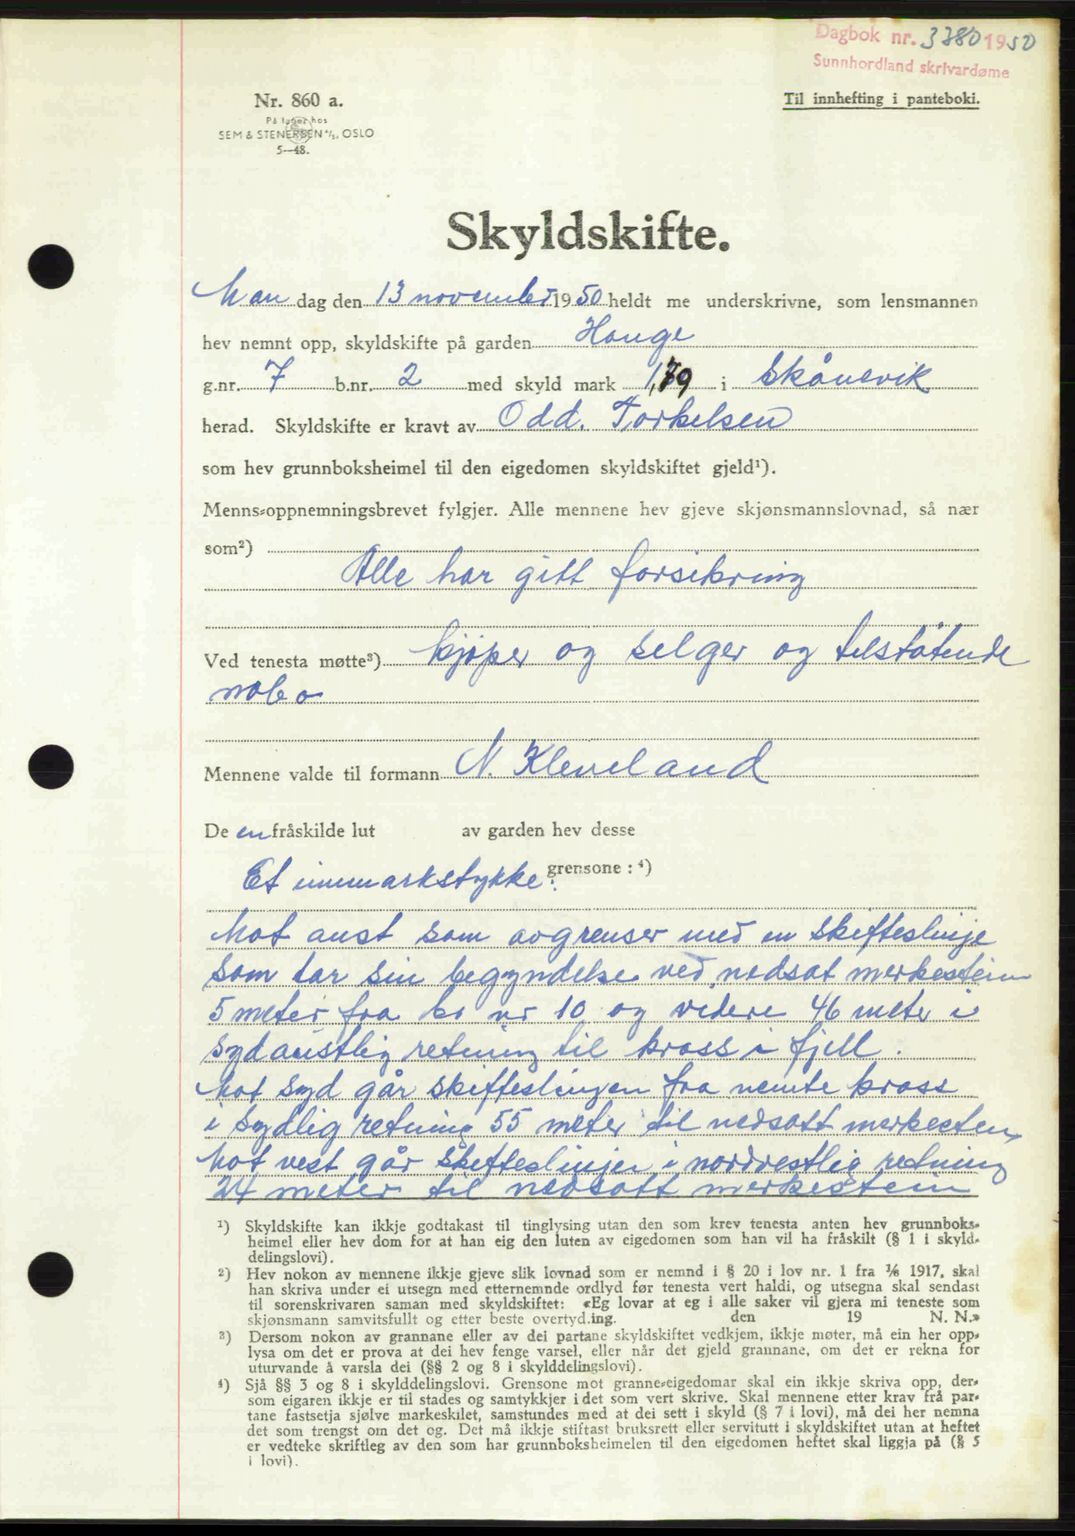 Dagbok nr. 3380 1950
Sunnhordland skrivardøme
Nr. 860 a.
På lager hos
SEM & STENERSEN A/S, OSLO
5—48.
Til innhefting i panteboki.
Skyldskifte.
Man dag den 13 november 1950 heldt me underskrivne, som lensmannen
hev nemnt opp, skyldskifte på garden Hauge
g.nr. 7 b.nr. 2 med skyld mark 1,79 i Skånevik
herad. Skyldskifte er kravt av Odd. Torkelsen
som hev grunnboksheimel til den eigedomen skyldskiftet gjeld¹).
Menns-oppnemningsbrevet fylgjer. Alle mennene hev gjeve skjønsmannslovnad, så nær
som²)
Alle har gitt forsikring
Ved tenesta møtte³) kjøper og selger og tilstøtende
nabo
Mennene valde til formann N. Kleveland
De en fråskilde lut av garden hev desse
grensone : ⁴)
Et innmarkstykke:
Mot aust som avgrenser med en skifteslinje
som tar sin begyndelse ved nedsat merkestein
5 meter fra bo nr 10 og videre 46 meter i
sydaustlig retning til kross i fjell.
Mot syd går skifteslinjen fra nemte kross
i sydlig retning 55 meter til nedsatt merkesten,
Mot vest går skifteslinjen i nordvestlig retning
24 meter til nedsatt merkestein
¹) Skyldskifte kan ikkje godtakast til tinglysing utan den som krev tenesta anten hev grunnboks-
heimel eller hev dom for at han eig den luten av eigedomen som han vil ha fråskilt (§ 1 i skyld-
delingslovi).
²) Hev nokon av mennene ikkje gjeve slik lovnad som er nemnd i § 20 i lov nr. 1 fra 1/6 1917, skal
han skriva under ei utsegn med etternemnde ordlyd før tenesta vert haldi, og utsegna skal sendast
til sorenskrivaren saman med skyldskiftet: «Eg lovar at eg i alle saker vil gjera mi teneste som
skjønsmann samvitsfullt og etter beste overtyding. den 19 N. N.»
³) Dersom nokon av grannane eller av dei partane skyldskiftet vedkjem, ikkje møter, må ein her opp-
lysa om det er prova at dei hev fenge varsel, eller når det gjeld grannane, om det er rekna for
uturvande å varsla dei (§§ 2 og 8 i skylddelingslovi).
⁴) Sjå §§ 3 og 8 i skylddelingslovi. Grensone mot granne-eigedomar skal ein ikkje skriva opp, der-
som eigaren ikkje er til stades og samtykkjer i det som vert skrive. Skal mennene etter krav frå par-
tane fastsetja sjølve markeskilet, samstundes med at dei sett i skyld (§ 7 i lovi), må dei her nemna
det som trengst om det og. Det må ikkje stiftast bruksrett eller servitutt i skyldskiftet utan at heftet
er vedteke skriftleg av den som har grunnboksheimelen til den eigedomen heftet skal liggja på (§ 5
i lovi).